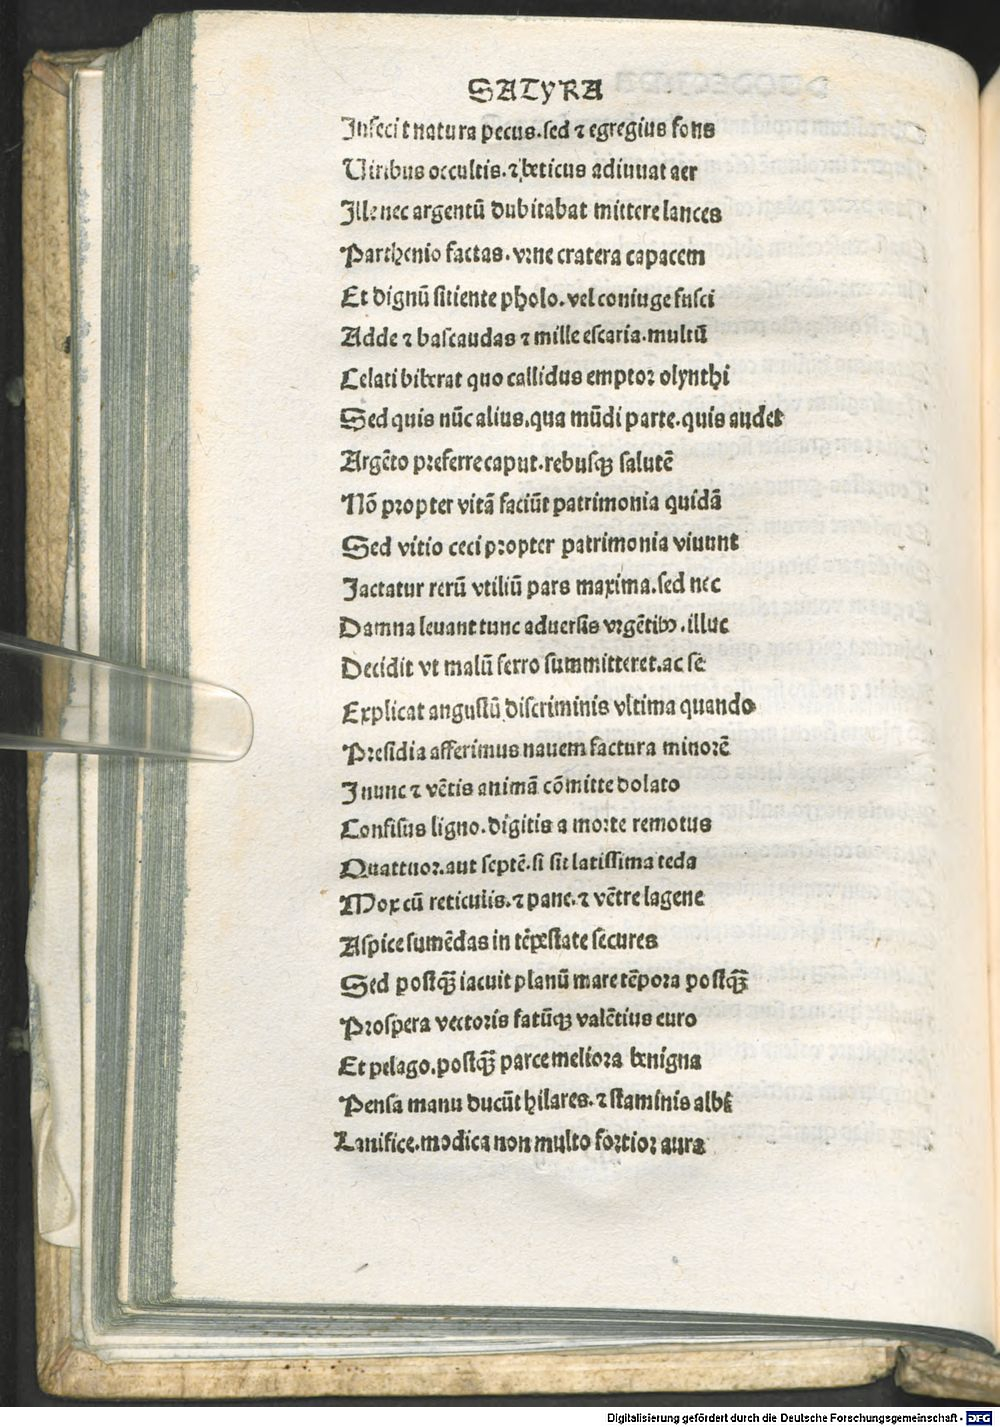 SATYRA
Infecit natura pecus. sed ⁊ egregius fons
Uiribus occultis. ⁊ beticus adiuuat aer
Ille nec argentū dubitabat mittere lances
Parthenio factas. vrne cratera capacem
Et dignū sitiente pholo. vel coniuge fusci
Adde ⁊ bascaudas ⁊ mille escaria. multū
Celati biberat quo callidus emptor olynthi
Sed quis nūc alius. qua mūdi parte. quis audet
Argēto preferre caput. rebusqꝫ salutē
Nō propter vitā faciūt patrimonia quidā
Sed vitio ceci propter patrimonia viuunt
Jactatur rerū vtiliū pars maxima. sed nec
Damna leuant tunc aduersis vrgētibꝰ. illuc
Decidit vt malū ferro summitteret. ac se
Explicat angustū discriminis vltima quando
Presidia afferimus nauem factura minorē
I nunc ⁊ vētis animā cōmitte dolato
Confisus ligno. digitis a morte remotus
Quattuor. aut septē. si sit latissima teda
Mox cū reticulis. ⁊ pane. ⁊ vētre lagene
Aspice sumēdas in tēpestate secures
Sed postqꝫ̄ iacuit planū mare tēpora postqꝫ̄
Prospera vectoris fatūqꝫ valētius euro
Et pelago. postqꝫ̄ parce meliora benigna
Pensa manu ducūt hilares. ⁊ staminis albi
Lanifice. modica non multo fortior aura
Digitalisierung gefördert durch die Deutsche Forschungsgemeinschaft - DFG